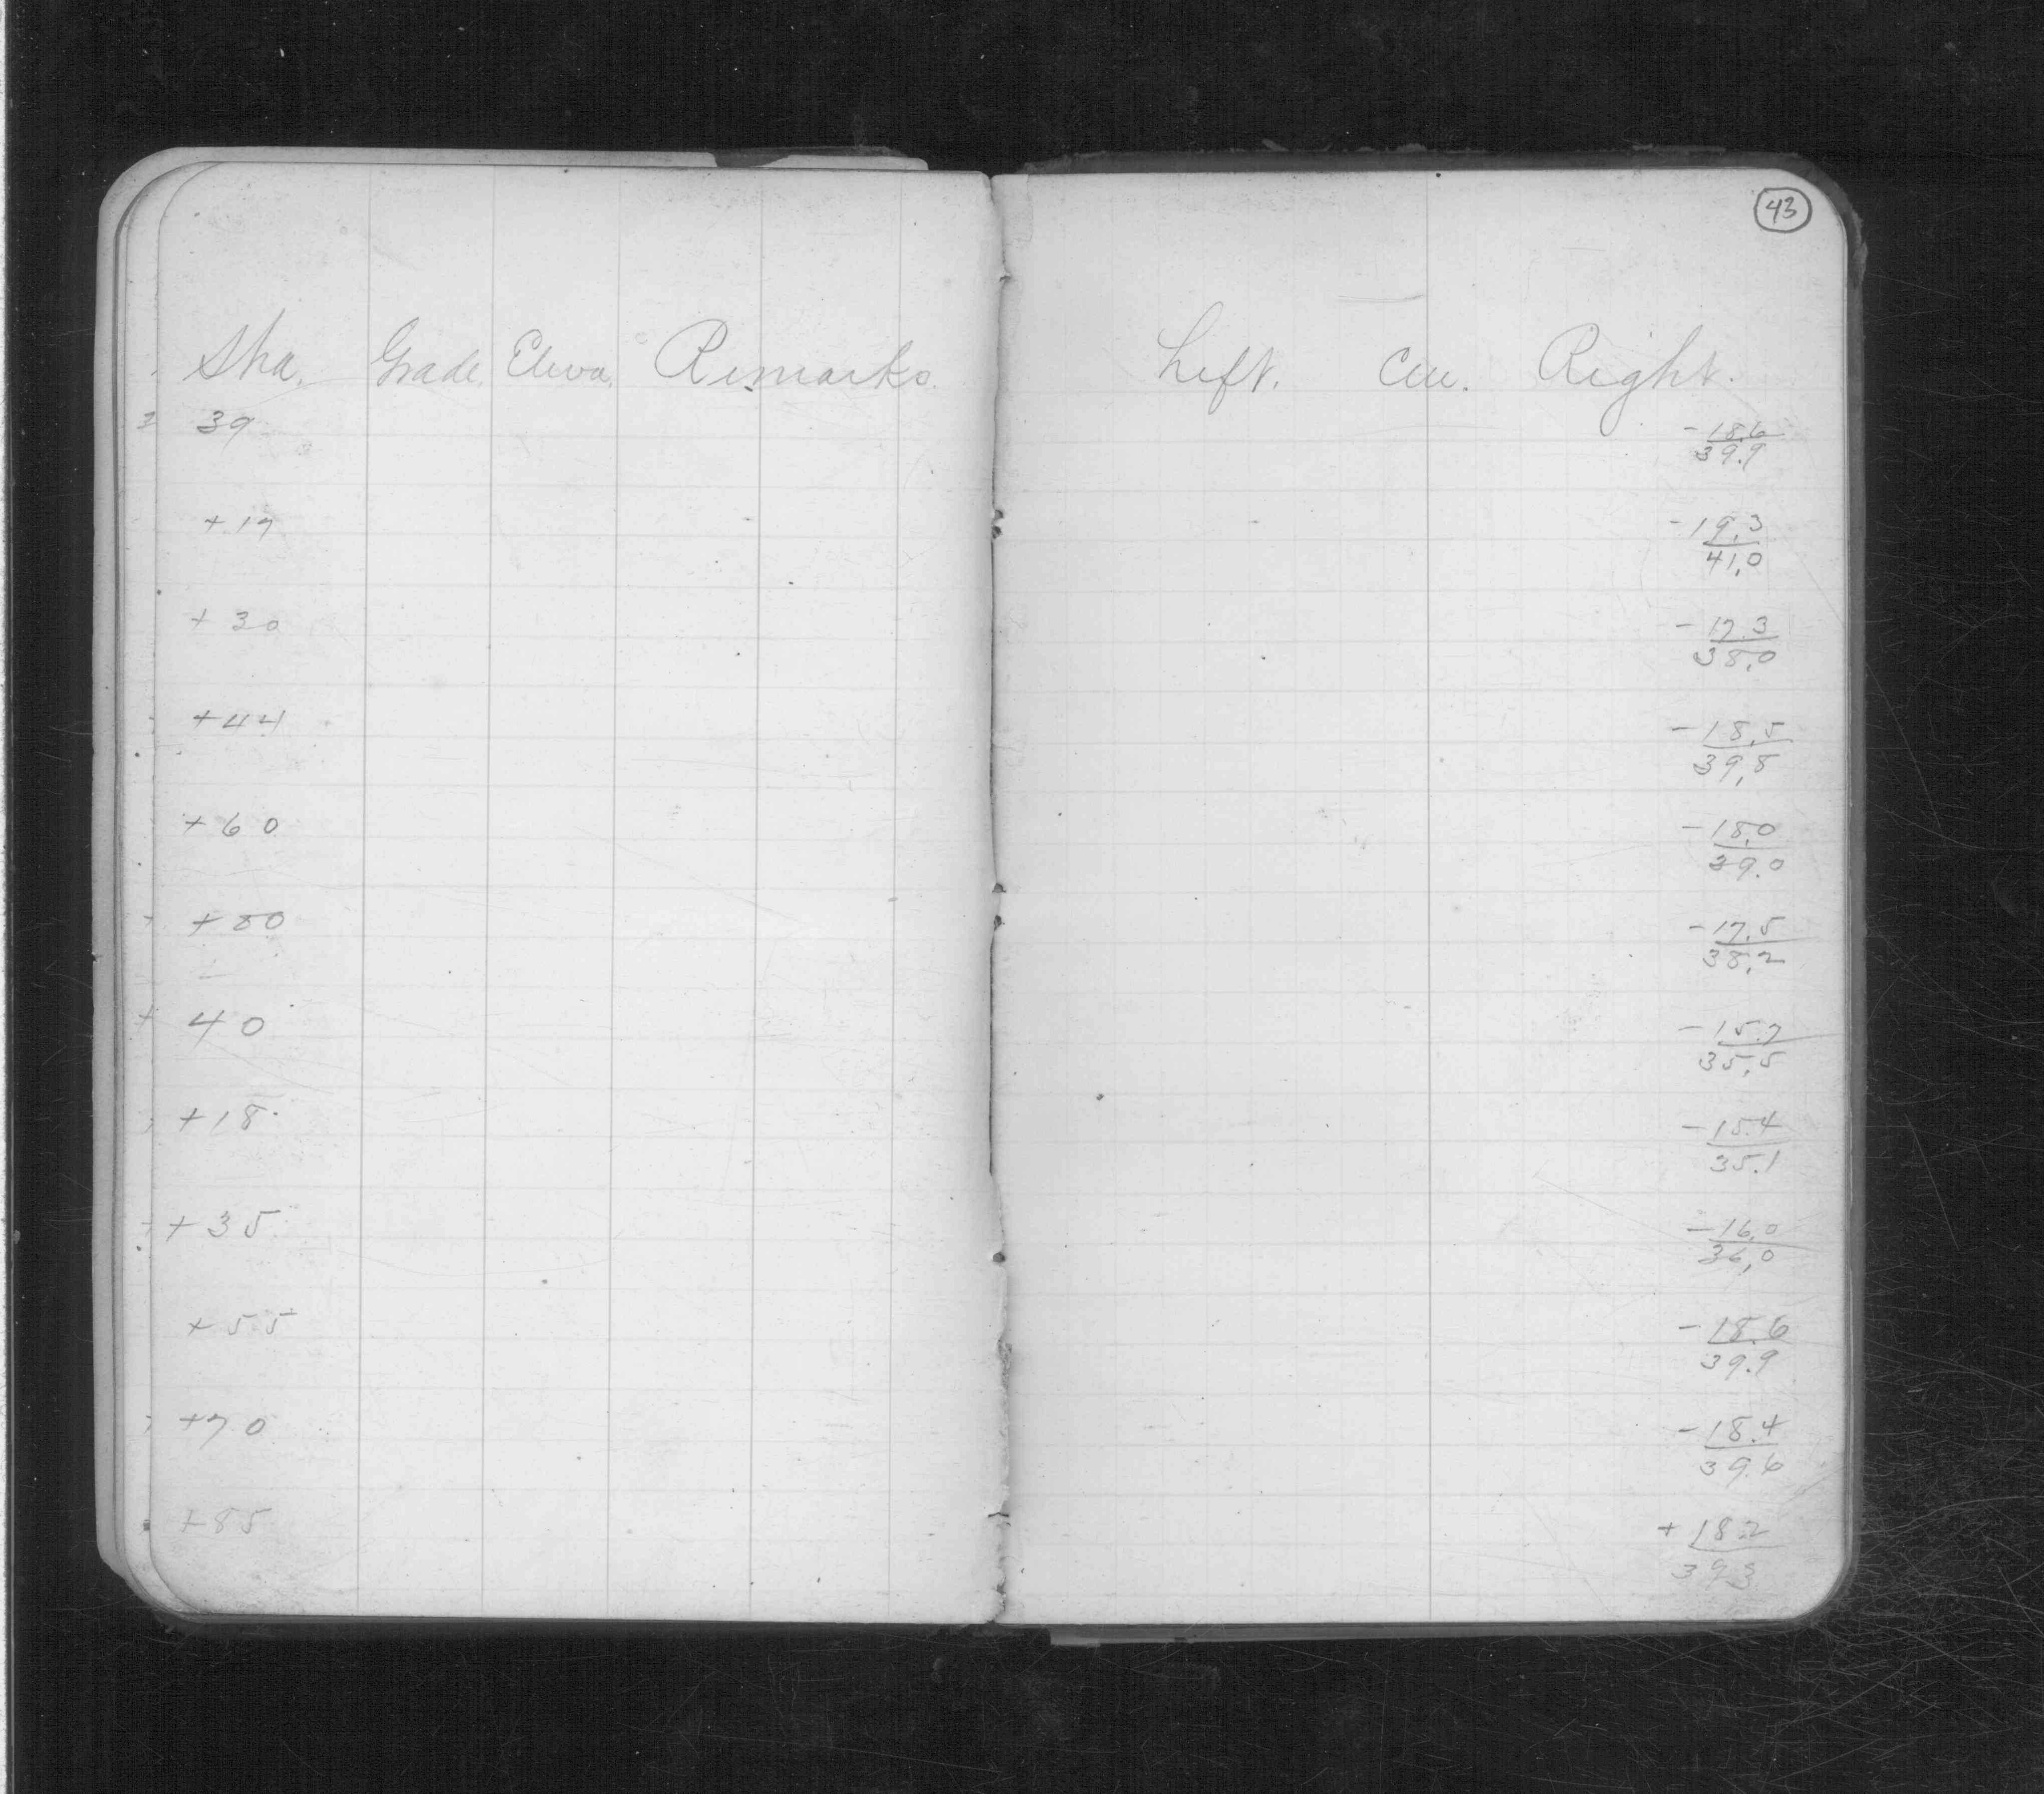 43
Sta. Grade. Eleva. Remarks. Left. Cen. Right.
39 -18.6
39.9
+17 -19.3
41.0
+30 -17.3
38.0
+44 -18.5
39.8
+60 -18.0
39.0
+80 -17.5
38.2
40 -15.7
35.5
+18 -15.4
35.1
+35 -16.0
36.0
+55 -18.6
39.9
+70 -18.4
39.6
+85 +18.2
39.3